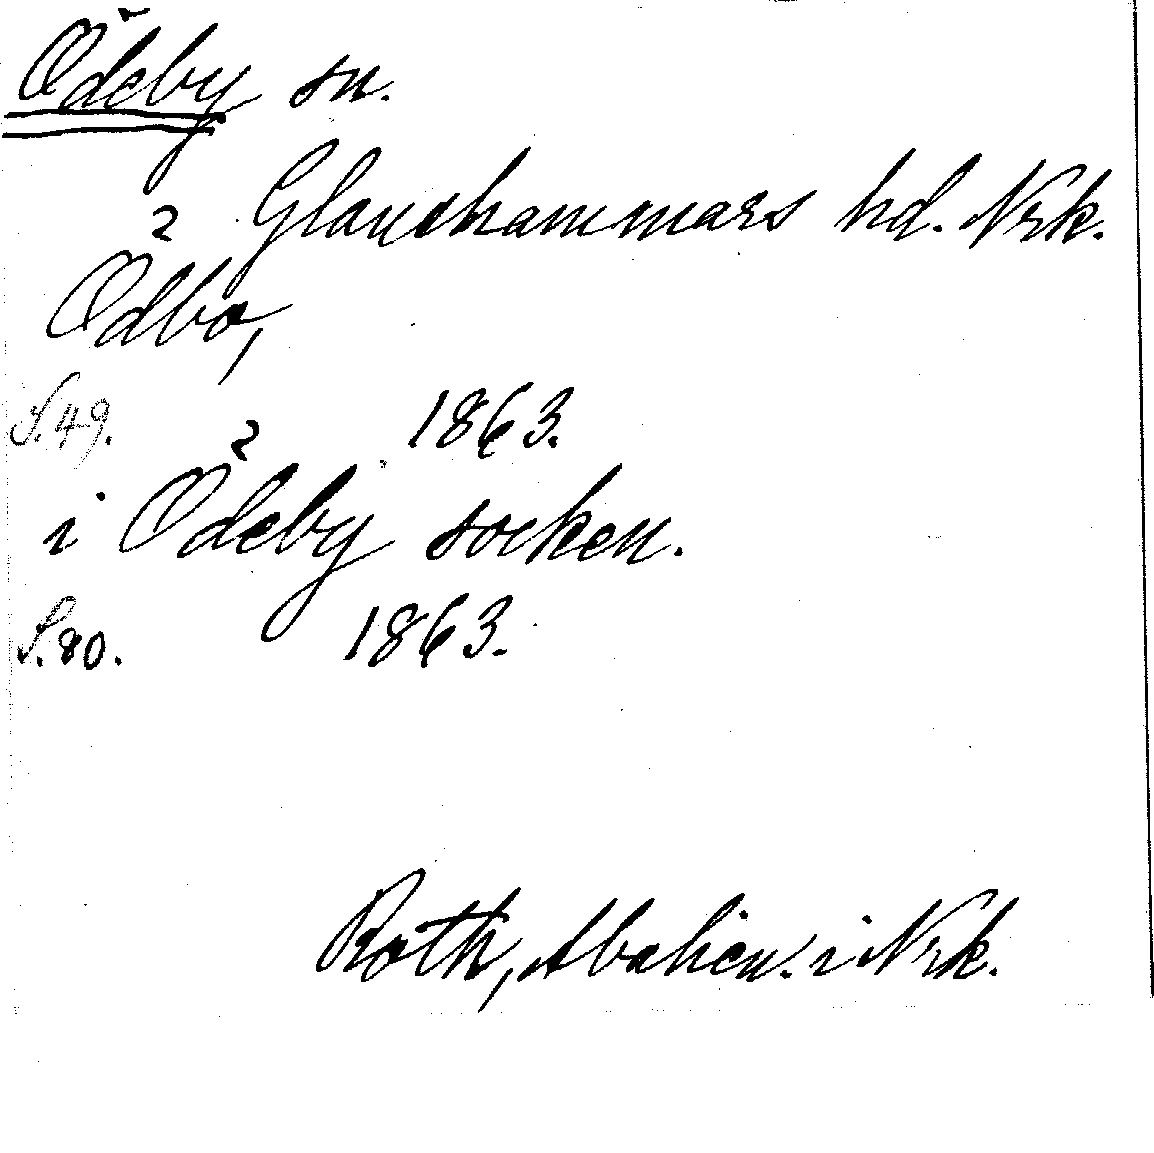 Ödeby sn.
Glanshammars hd. Nrk.
Ödbo,
S.49. 1863.
i Ödeby socken.
S.80. 1863.
Roth, i Nrk.